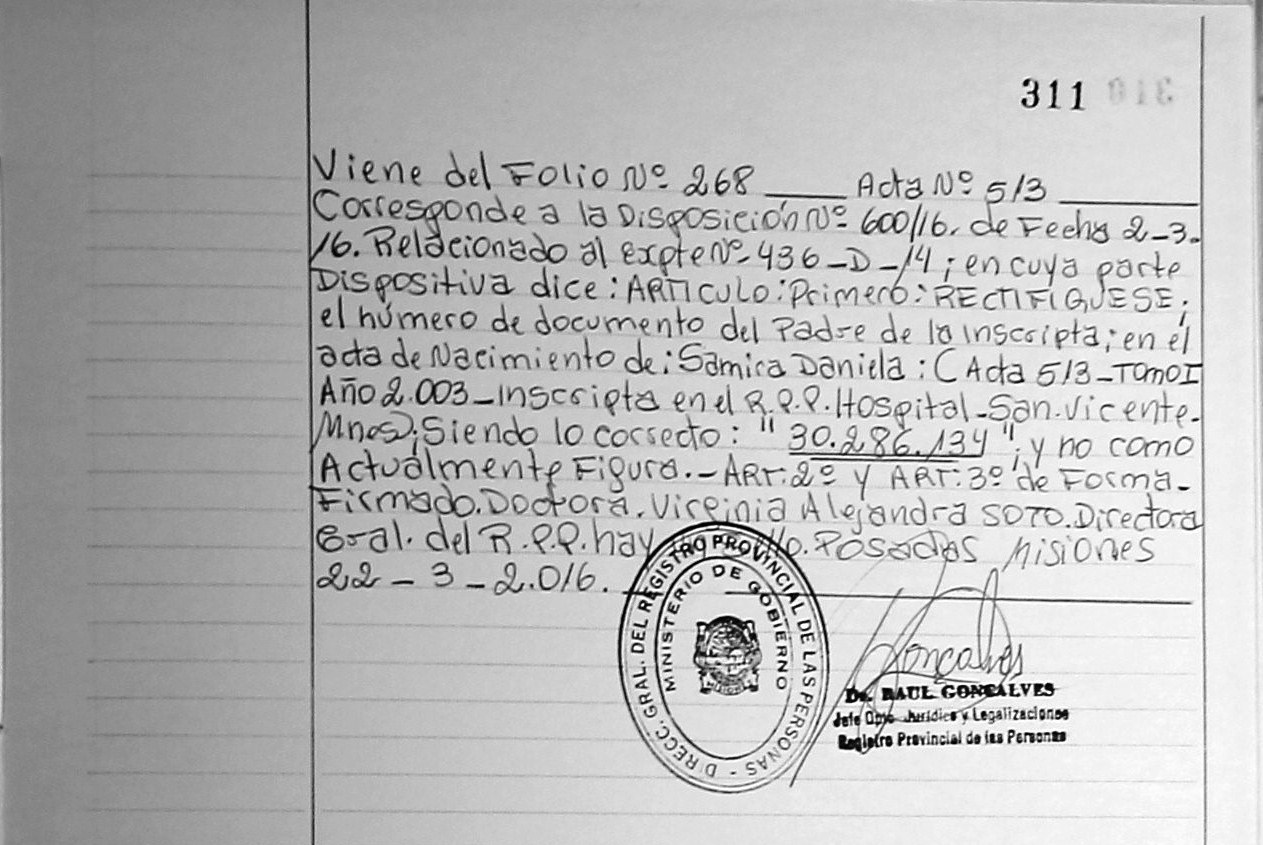 311 310
Viene del Folio Nº 268 ____ Acta Nº 513 ______
Corresponde a la Disposición Nº 600/16. de Fecha 2-3-
16. Relacionado al expte Nº 436-D-14; en cuya parte
Dispositiva dice: ARTICULO: Primero: RECTIFIQUESE;
el número de documento del Padre de la inscripta; en el
acta de Nacimiento de: Samira Daniela: (Acta 513-Tomo I
Año 2.003-Inscripta en el R.P.P. Hospital-San.Vicente.
Mnes); Siendo lo correcto: "30.286.134"; y no como
Actualmente Figura.- ART: 2º y ART: 3º de Forma.
Firmado. Doctora. Virginia Alejandra SOTO. Directora
Gral. del R.P.P. hay Posadas Misiones
22-3-2.016.
DIRECC. GRAL. DEL REGISTRO PROVINCIAL DE LAS PERSONAS -
MINISTERIO DE GOBIERNO
Goncalves
Dr. RAUL GONCALVES
Jefe Dpto. Jurídico y Legalizaciones
Registro Provincial de las Personas